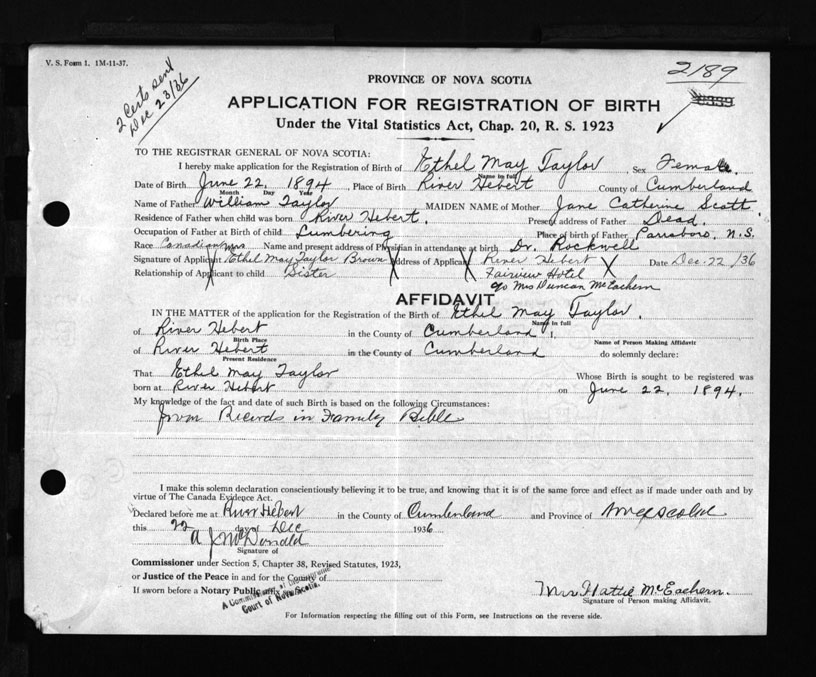 V. S. Form 1. 1M-11-37.
2 Certs sent
Dec 23/36
2189
PROVINCE OF NOVA SCOTIA
APPLICATION FOR REGISTRATION OF BIRTH
Under the Vital Statistics Act, Chap. 20, R. S. 1923
TO THE REGISTRAR GENERAL OF NOVA SCOTIA:
I hereby make application for the Registration of Birth of Ethel May Taylor, Sex Female.
Name in full
Date of Birth June 22, 1894, Place of Birth River Hebert County of Cumberland
Month Day Year
Name of Father William Taylor MAIDEN NAME of Mother Jane Catherine Scott
Residence of Father when child was born River Hebert. Present address of Father Dead.
Occupation of Father at Birth of child Lumbering Place of birth of Father Parrsboro, N.S.
Race Canadian Name and present address of Physician in attendance at birth Dr. Rockwell
Signature of Applicant Ethel May Taylor Brown Address of Applicant River Hebert Date Dec. 22/36
Relationship of Applicant to child Sister Fairview Hotel
c/o Mrs Duncan McEachern
AFFIDAVIT
IN THE MATTER of the application for the Registration of the Birth of Ethel May Taylor.
Name in full
of River Hebert in the County of Cumberland.
Birth Place Name of Person Making Affidavit
of River Hebert in the County of Cumberland do solemnly declare:
Present Residence
That Ethel May Taylor Whose Birth is sought to be registered was
born at River Hebert on June 22, 1894.
My knowledge of the fact and date of such Birth is based on the following Circumstances:
from Records in Family Bible
I make this solemn declaration conscientiously believing it to be true, and knowing that it is of the same force and effect as if made under oath and by
virtue of The Canada Evidence Act.
Declared before me at River Hebert in the County of Cumberland and Province of Nova Scotia
this 22 day of Dec 1936
A J McDonald
Signature of
Commissioner under Section 5, Chapter 38, Revised Statutes, 1923,
or Justice of the Peace in and for the County of
If sworn before a Notary Public affix
A Commissioner of the Supreme
Court of Nova Scotia.
Mrs Hattie McEachern.
Signature of Person making Affidavit.
For Information respecting the filling out of this Form, see Instructions on the reverse side.